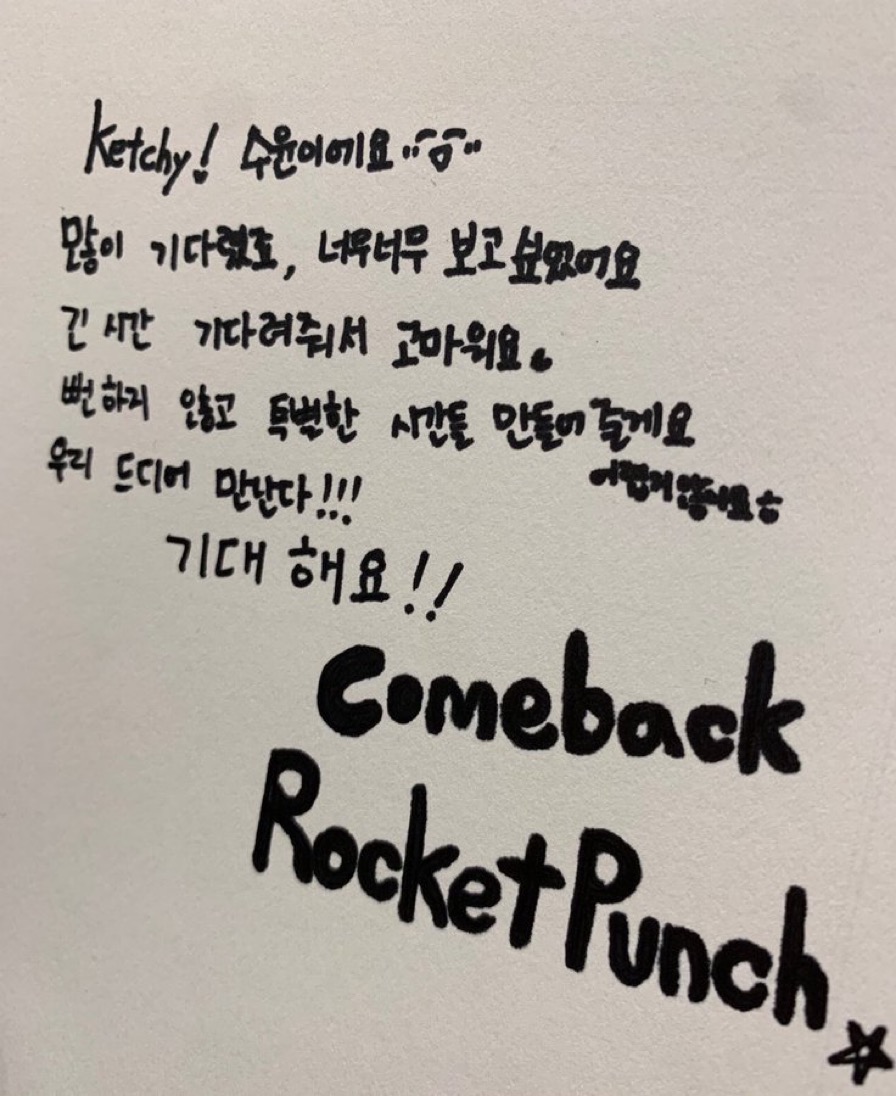 Ketchy! 수윤이에요
많이 기다렸죠, 너무너무 보고싶었어요
긴 시간 기다려줘서 고마워요.
뻔하지 않고 특별한 시간들 만들어 줄게요
어렵지않아요
우리 드디어 만난다!!!
기대 해요!!
Comeback
Rocket Punch